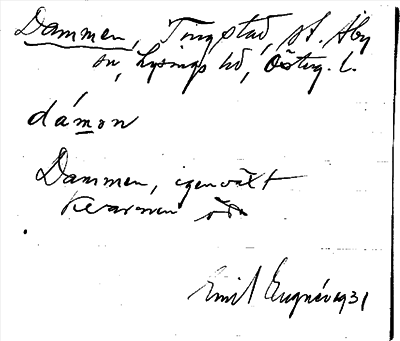 Dammen, Tingstad, st. Åby
sn, Lysings hd, Östug. l.
dámon
Dammen, igenväxt
Kvarnen öde
Emil Eugnév 1931